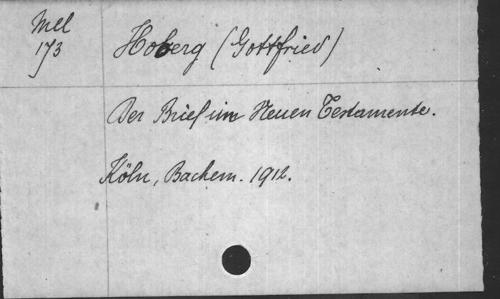 Mel
173
Hoberg (Gottfried)
Der Brief im Neuen Testamente.
Köln, Bachem. 1912.